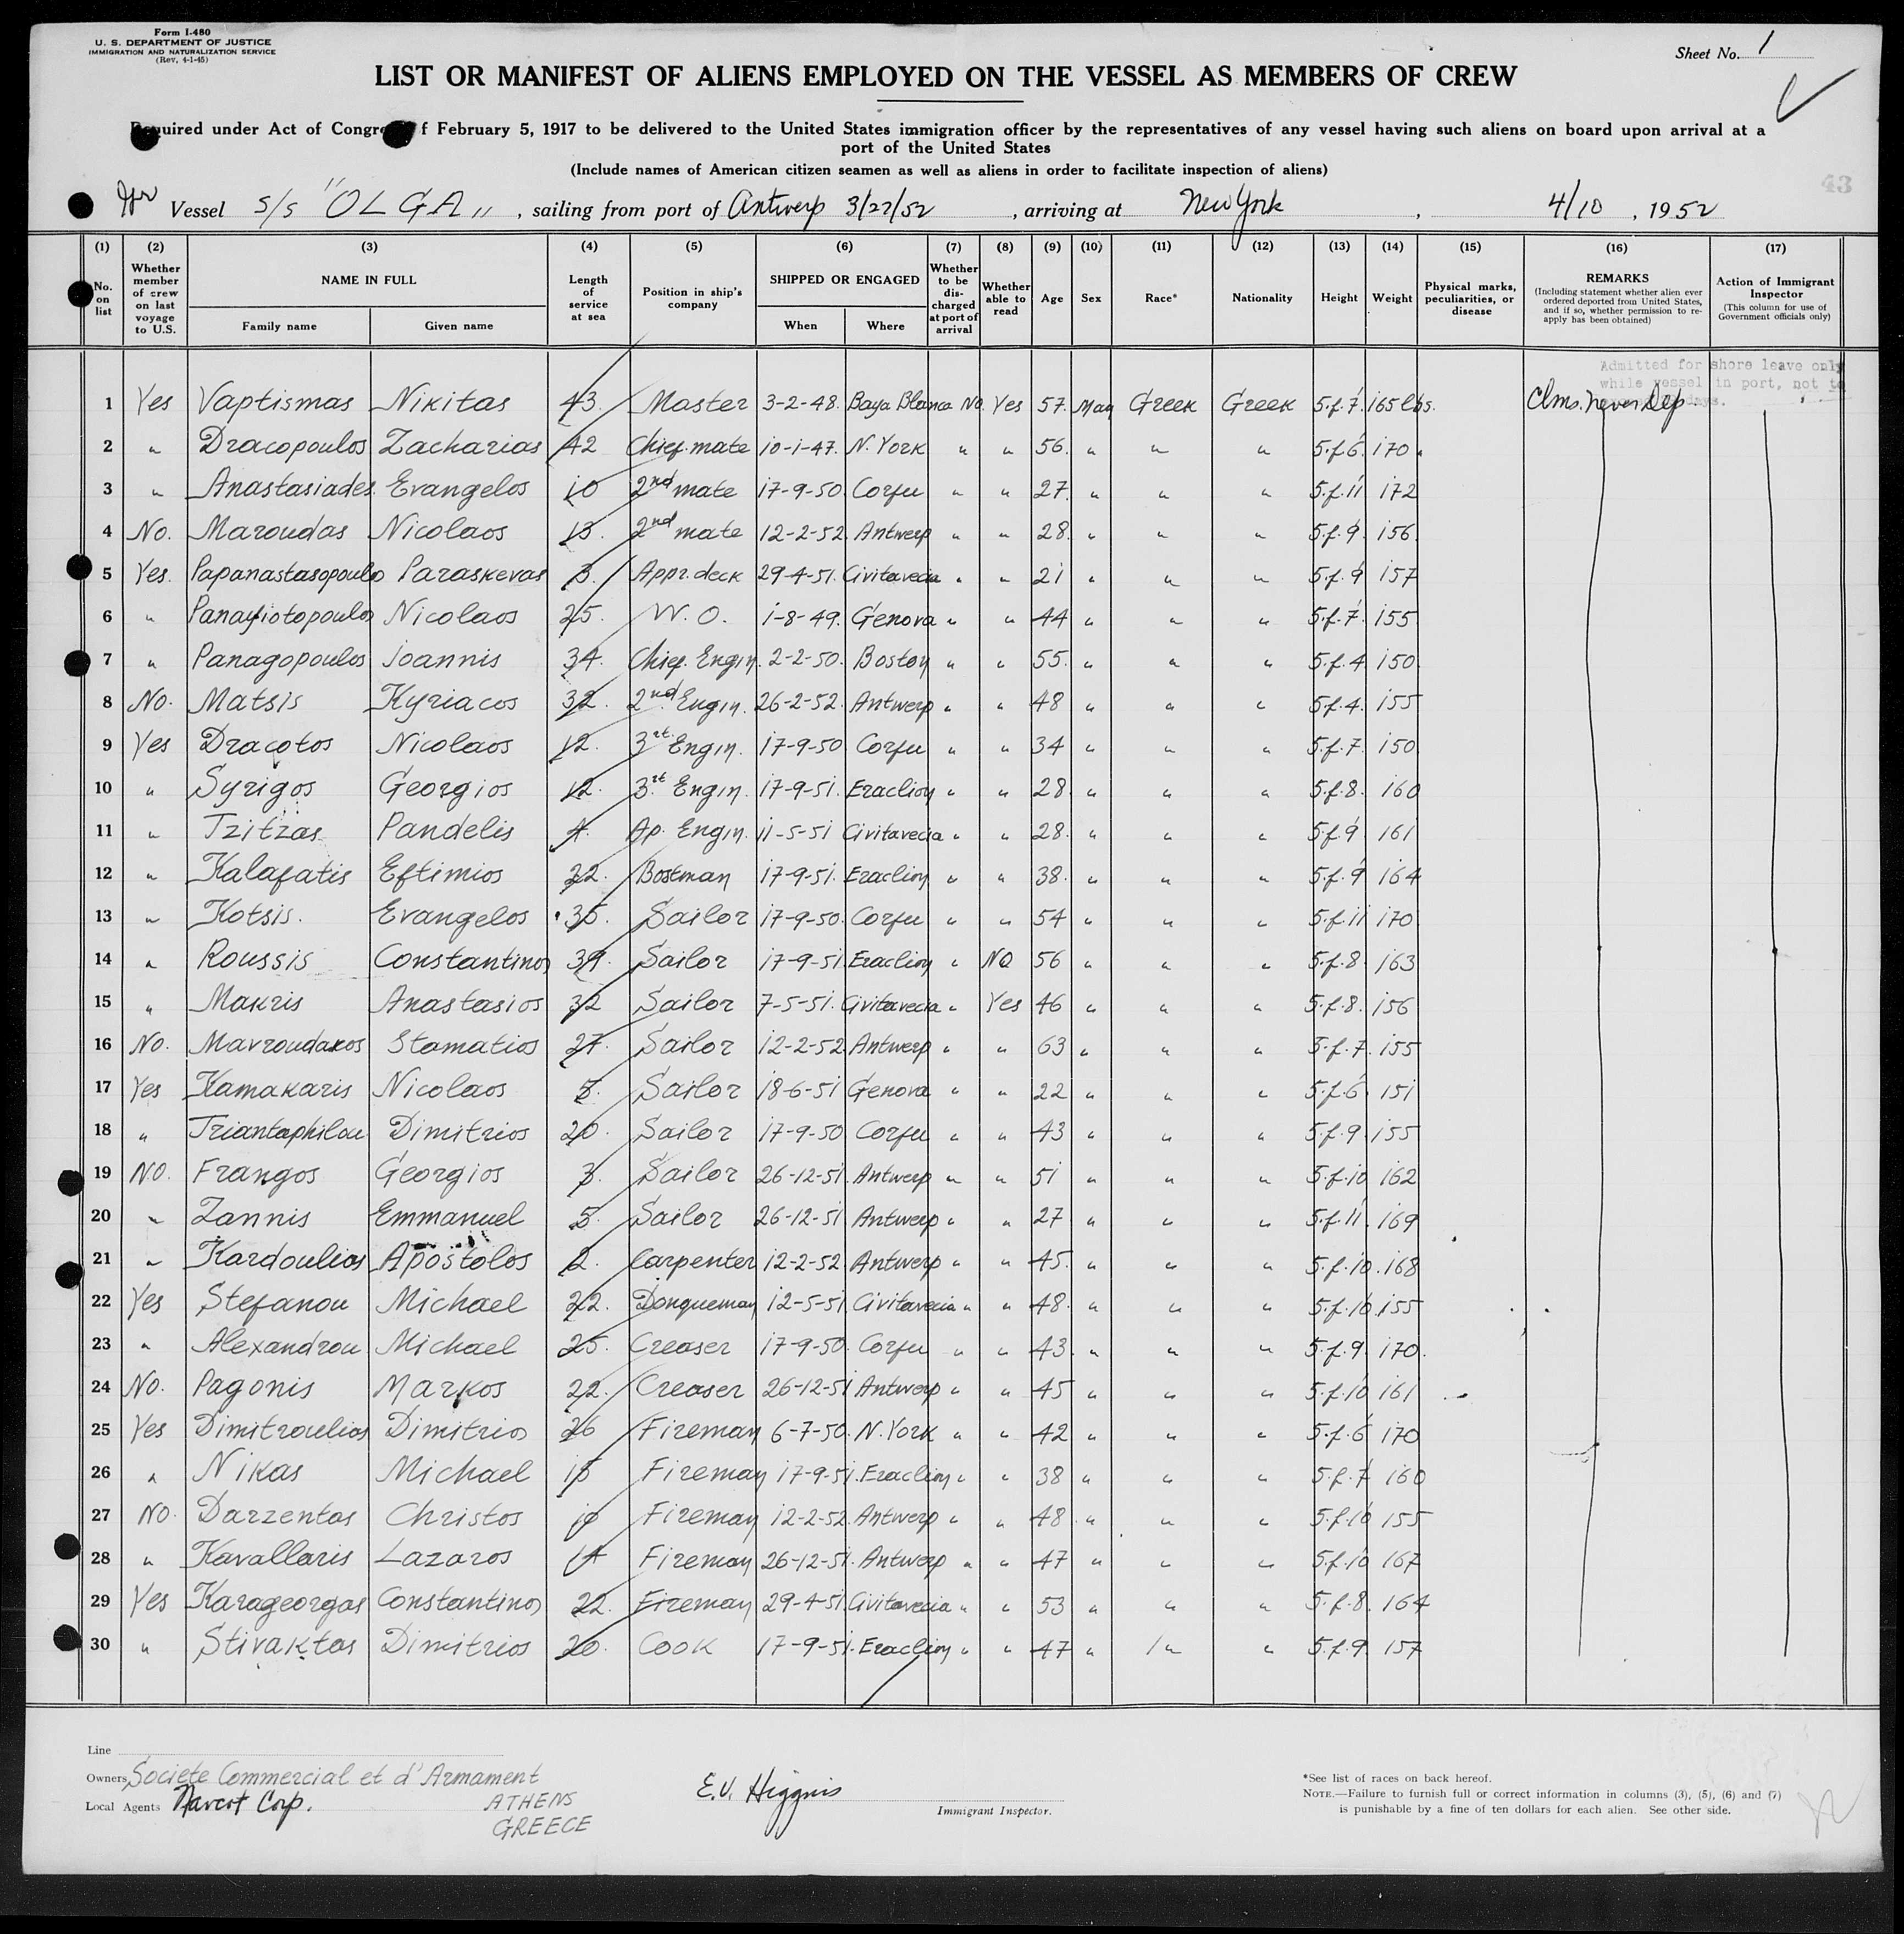 Form I-480
U. S. DEPARTMENT OF JUSTICE
IMMIGRATION AND NATURALIZATION SERVICE
(Rev. 4-1-45)
Sheet No. 1
LIST OR MANIFEST OF ALIENS EMPLOYED ON THE VESSEL AS MEMBERS OF CREW
Required under Act of Congress of February 5, 1917 to be delivered to the United States immigration officer by the representatives of any vessel having such aliens on board upon arrival at a
port of the United States
(Include names of American citizen seamen as well as aliens in order to facilitate inspection of aliens)
43
Vessel S/S "OLGA" , sailing from port of Antwerp 3/27/52 , arriving at New York , 4/10 , 1952
(1) (2) (3) (4) (5) (6) (7) (8) (9) (10) (11) (12) (13) (14) (15) (16) (17)
No. on list
Whether member of crew on last voyage to U.S.
NAME IN FULL
Family name Given name
Length of service at sea
Position in ship's company
SHIPPED OR ENGAGED
When Where
Whether to be discharged at port of arrival
Whether able to read
Age
Sex
Race*
Nationality
Height
Weight
Physical marks, peculiarities, or disease
REMARKS
(Including statement whether alien ever ordered deported from United States, and if so, whether permission to re-apply has been obtained)
Action of Immigrant Inspector
(This column for use of Government officials only)
Admitted for shore leave only
while vessel in port, not to
days.
1 Yes Vaptismas Nikitas 43. Master 3-2-48. Baya Blanca No. Yes 57. Man Greek Greek 5.f.7. 165 lbs. Clms. never Dep.
2 " Dracopoulos Zacharias 42 Chief. mate 10-1-47. N. York " " 56. " " " 5.f.6. 170 "
3 " Anastasiades Evangelos 10 2nd mate 17-9-50. Corfu " " 27. " " " 5.f.11 172
4 No. Maroudas Nicolaos 13. 2nd mate 12-2-52 Antwerp " " 28. " " " 5.f.9. 156
5 Yes. Papanastasopoulo Paraskevas 3. Appr. deck 29-4-51. Civitavecia " " 21 " " " 5.f.9 157
6 " Panayiotopoulos Nicolaos 25. W. O. 1-8-49. Genova " " 44 " " " 5.f.7. 155
7 " Panagopoulos Joannis 34. Chief. Engin. 2-2-50. Boston " " 55. " " " 5.f.4 150
8 No. Matsis Kyriacos 32. 2nd Engin. 26-2-52. Antwerp " " 48 " " " 5.f.4. 155
9 Yes Dracotos Nicolaos 12. 3rt. Engin. 17-9-50 Corfu " " 34 " " " 5.f.7. 150
10 " Syrigos Georgios 12. 3rt Engin. 17-9-51. Eraclion " " 28. " " " 5.f.8. 160
11 " Tzitzas Pandelis 4. Ap. Engin. 11-5-51 Civitavecia " " 28. " " " 5.f.9 161
12 " Kalafatis Eftimios 22. Bostman 17-9-51. Eraclion " " 38. " " " 5.f.9 164
13 " Kotsis. Evangelos 35. Sailor 17-9-50. Corfu " " 54 " " " 5.f.11 170
14 " Roussis Constantinos 39. Sailor 17-9-51. Eraclion " NO 56 " " " 5.f.8. 163
15 " Makris Anastasios 32 Sailor 7-5-51. Civitavecia " Yes 46 " " " 5.f.8. 156
16 No. Mavroudakos Stamatios 27. Sailor 12-2-52 Antwerp " " 63 " " " 5.f.7. 155
17 Yes Kamakaris Nicolaos 5. Sailor 18-6-51 Genova " " 22 " " " 5.f.6. 151
18 " Triantaphilou Dimitrios 20. Sailor 17-9-50 Corfu " " 43 " " " 5.f.9. 155
19 NO. Frangos Georgios 3. Sailor 26-12-51 Antwerp " " 51 " " " 5.f.10 162
20 " Zannis Emmanuel 5. Sailor 26-12-51 Antwerp " " 27 " " " 5.f.11. 169
21 " Kardoulias Apostolos 2. Carpenter 12-2-52 Antwerp " " 45. " " " 5.f.10. 168
22 Yes Stefanou Michael 22. Donqueman 12-5-51 Civitavecia " " 48. " " " 5.f.10 155
23 " Alexandrou Michael 25. Creaser 17-9-50. Corfu " " 43. " " " 5.f.9. 170.
24 NO. Pagonis Markos 22. Creaser 26-12-51 Antwerp " " 45 " " " 5.f.10 161
25 Yes Dimitroulias Dimitrios 26 Fireman 6-7-50. N. York " " 42 " " " 5.f.6 170
26 " Nikas Michael 15 Fireman 17-9-51. Eraclion " " 38 " " " 5.f.7 160
27 NO. Darzentas Christos 10 Fireman 12-2-52. Antwerp " " 48. " " " 5.f.10 155
28 " Kavallaris Lazaros 14 Fireman 26-12-51. Antwerp " " 47 " " " 5.f.10 167
29 Yes Karageorgas Constantinos 22. Fireman 29-4-51 Civitavecia " " 53 " " " 5.f.8. 164
30 " Stivaktas Dimitrios 20. Cook 17-9-51. Eraclion " " 47 " " " 5.f.9. 157
Line
Owners Societe Commercial et d'Armament
ATHENS
GREECE
Local Agents Navcot Corp.
E.V. Higgins
Immigrant Inspector.
*See list of races on back hereof.
NOTE.—Failure to furnish full or correct information in columns (3), (5), (6) and (7)
is punishable by a fine of ten dollars for each alien. See other side.